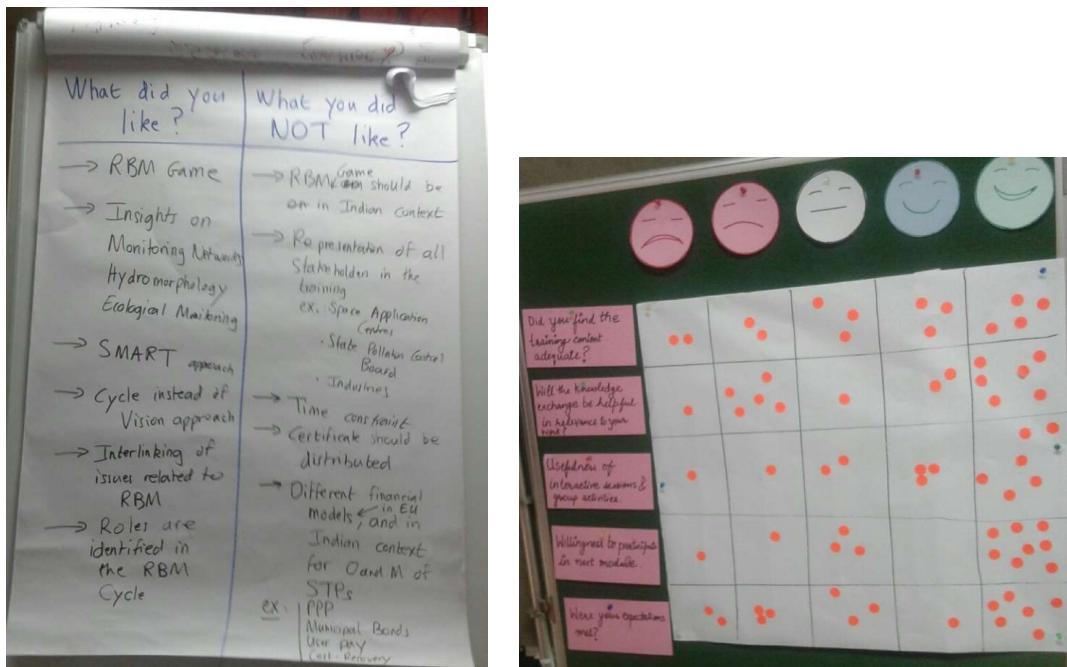 What did you
like?
→ RBM Game
→ Insights on
Monitoring Networks
Hydromorphology
Ecological Monitoring
→ SMART approach
→ Cycle instead of
Vision approach
→ Interlinking of
issues related to
RBM
→ Roles are
identified in
the RBM
Cycle
What you did
NOT like?
→ RBM Game should be
on in Indian context
→ Representation of all
Stakeholders in the
training
ex. Space Application
Centres
· State Pollution Control
Board
· Industries
→ Time constraint
→ Certificate should be
distributed
→ Different financial
models ← in EU
, and in
Indian context
for O and M of
STPs
ex. PPP
Municipal Bonds
User pay
Cost-Recovery
Did you find the
training content
adequate?
Will the knowledge
exchange be helpful
in relevance to your
Usefulness of
interactive sessions &
group activities.
Willingness to participate
in next module.
Were your expectations
met?